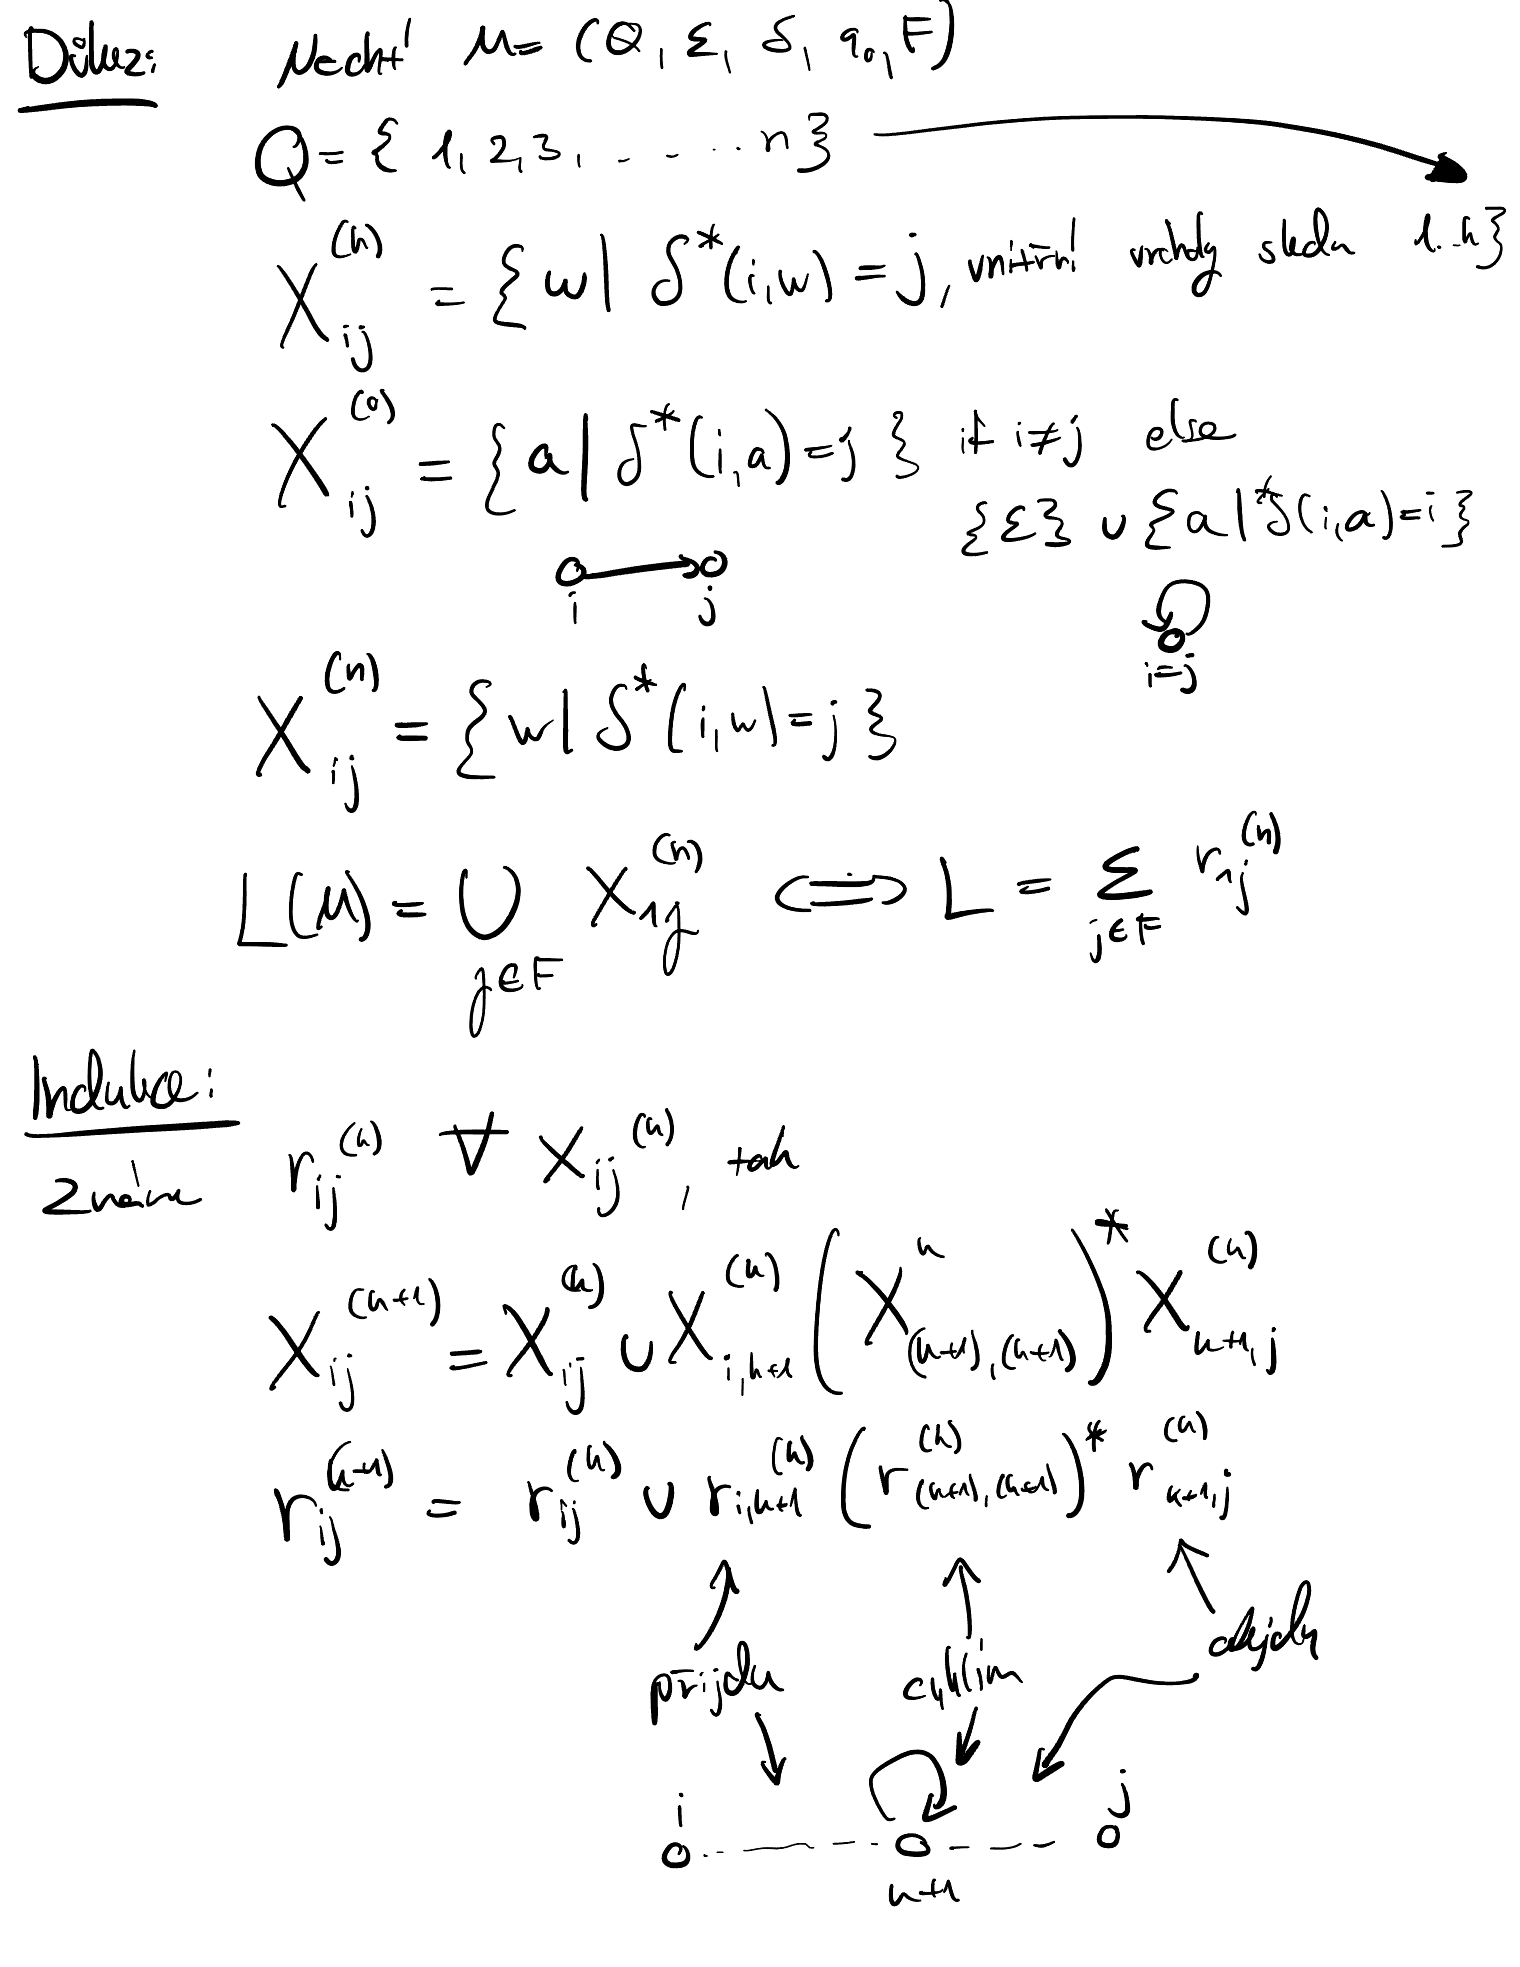 Důkaz: Nechť M = (Q, Σ, δ, q₀, F)
Q = { 1, 2, 3, . . . . . n }
X_{ij}^{(k)} = { w | δ*(i, w) = j, vnitřní vrcholy sledu 1..k }
X_{ij}^{(0)} = { a | δ*(i, a) = j } if i ≠ j else
{ε} ∪ { a | δ*(i, a) = i }
i j
i=j
X_{ij}^{(n)} = { w | δ*(i, w) = j }
L(M) = ∪_{j∈F} X_{1j}^{(n)} ⟺ L = Σ_{j∈F} r_{1j}^{(n)}
Indukce:
známe r_{ij}^{(k)} ∀ X_{ij}^{(k)}, tak
X_{ij}^{(k+1)} = X_{ij}^{(k)} ∪ X_{i,k+1}^{(k)} ( X_{(k+1),(k+1)}^{k} )* X_{k+1,j}^{(k)}
r_{ij}^{(k+1)} = r_{ij}^{(k)} ∪ r_{i,k+1}^{(k)} ( r_{(k+1),(k+1)}^{(k)} )* r_{k+1,j}^{(k)}
přijdu cyklím odejdu
i j
k+1